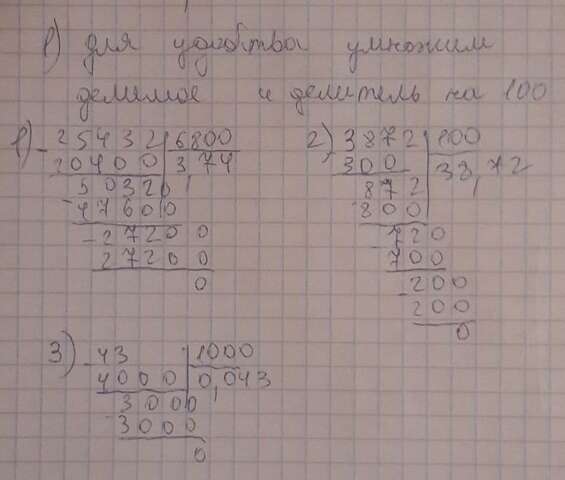 1) для удобства умножим
делимое и делитель на 100
1) 25432 | 6800    2) 3872 | 100
20400 | 3,74    300 | 38,72
50320    872
47600    800
27200    720
27200    700
0    200
200
0
3) 43 | 1000
4000 | 0,043
3000
3000
0